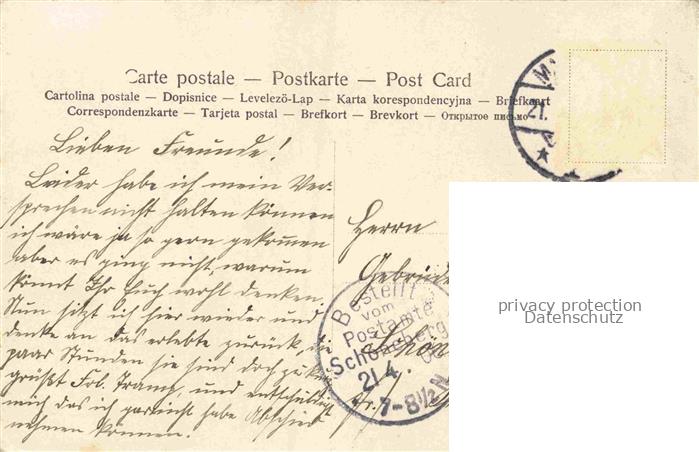 Carte postale — Postkarte — Post Card
Cartolina postale — Dopisnice — Levelező-Lap — Karta korespondencyjna — Briefkaart
Correspondenzkarte — Tarjeta postal — Brefkort — Brevkort — Открытое письмо
M
21.
Lieben Freunde!
Leider habe ich mein Ver-
sprechen nicht halten können
ich wäre ja so gern gekommen
aber es ging nicht, warum
könnt Ihr Euch wohl denken.
Nun sitz ich hier wieder und
denke an das erlebte zurück, die
paar Stunden sie sind doch zu
grüßt Frl. und entschuldigt
mich das ich garnicht habe Abschied
nehmen können.
Herrn
Gebrüder
Schön
Bestellt
vom
Postamte
Schöneberg
21.4.
7-8½N
privacy protection
Datenschutz